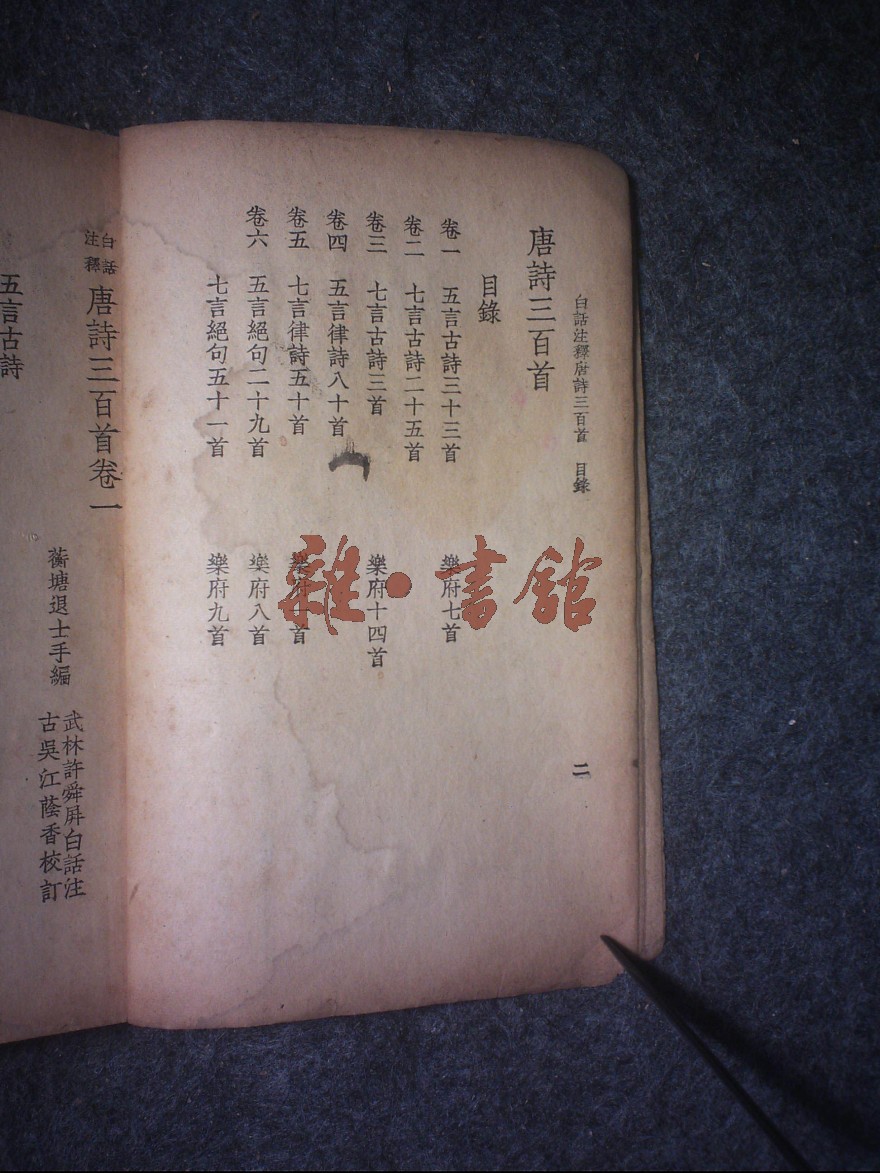 白話注釋唐詩三百首 目錄
二
唐詩三百首
目錄
卷一 五言古詩三十三首 樂府七首
卷二 七言古詩二十五首
卷三 七言古詩三首 樂府十四首
卷四 五言律詩八十首
卷五 七言律詩五十首 樂府一首
卷六 五言絕句二十九首 樂府八首
七言絕句五十一首 樂府九首
白話注釋 唐詩三百首卷一
蘅塘退士手編
武林許舜屏白話注
古吳江蔭香校訂
五言古詩
雜·書館